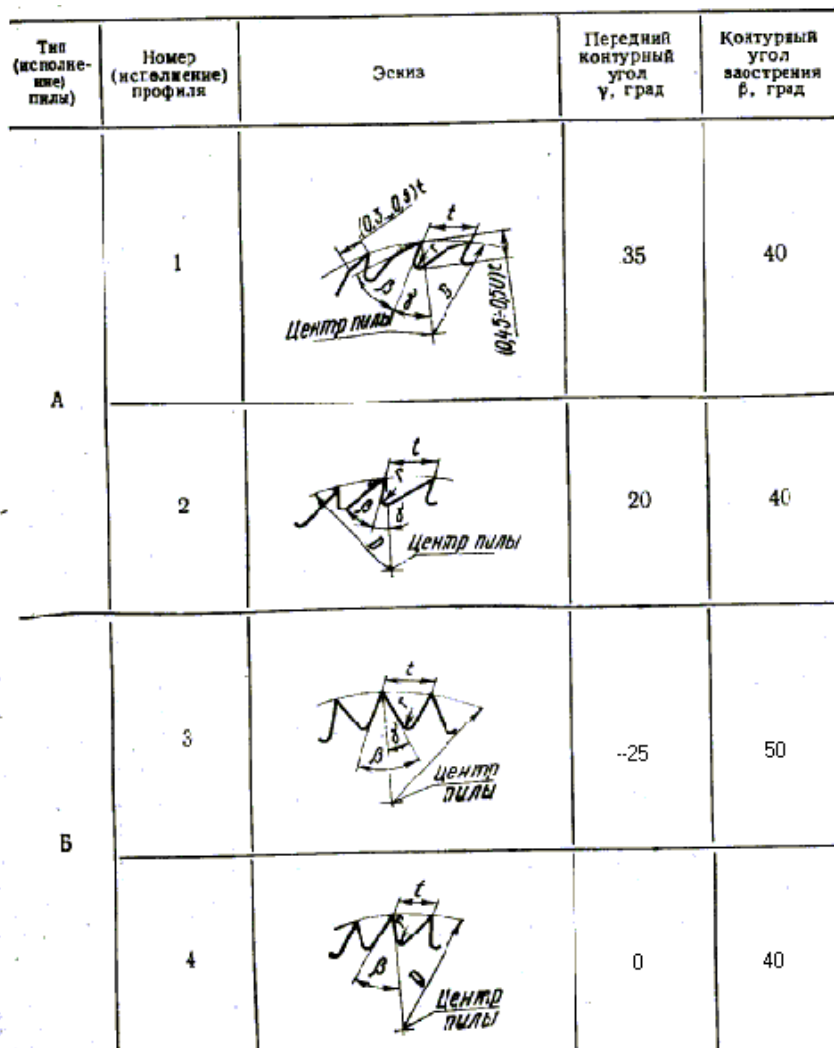 Тип
(исполне-
ние)
пилы)
Номер
(исполнение)
профиля
Эскиз
Передний
контурный
угол
γ, град
Контурный
угол
заострения
β, град
А
1
(0,3...0,9)t
t
r
β
γ
D
(0,45÷0,50)t
Центр пилы
35
40
2
t
r
β
γ
D
Центр пилы
20
40
Б
3
t
r
γ
β
Центр
пилы
--25
50
4
t
r
β
D
Центр
пилы
0
40